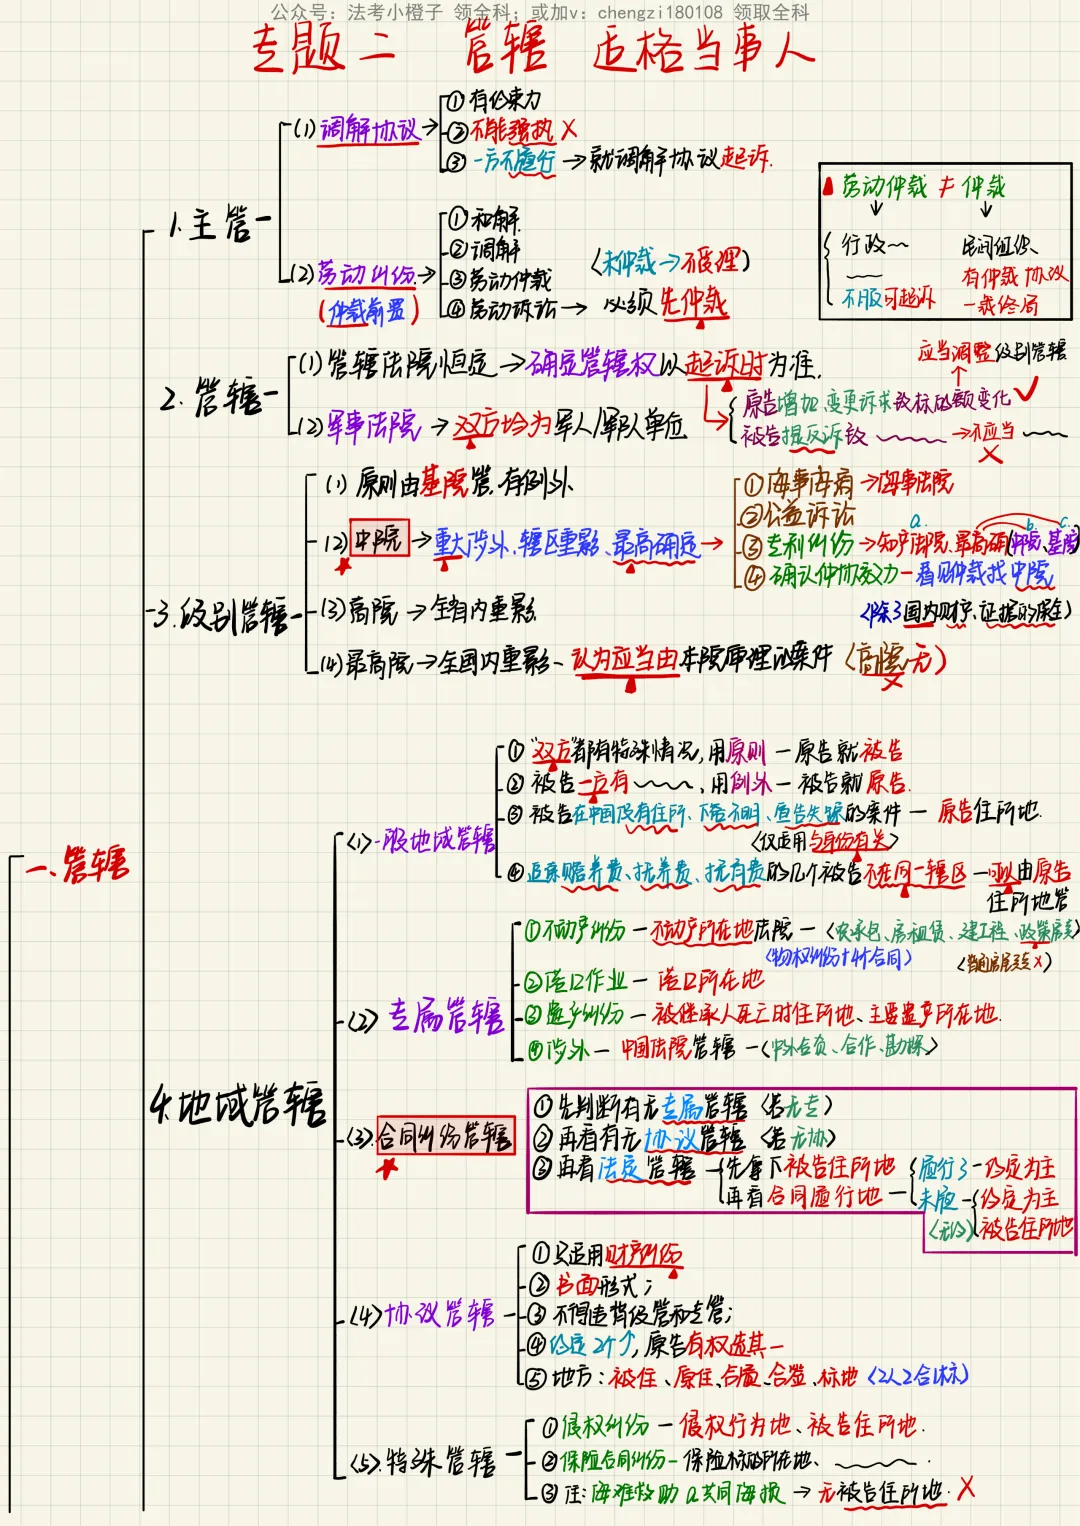 公众号：法考小橙子 领全科；或加v：chengzi180108 领取全科
专题二 管辖 适格当事人
一、管辖
1.主管
(1)调解协议→
①有约束力
②不能强执 X
③一方不履行→就调解协议起诉.
(2)劳动纠纷→
(仲裁前置)
①和解
②调解
③劳动仲裁
④劳动诉讼→必须先仲裁
(未仲裁→不受理)
劳动仲裁 ≠ 仲裁
行政~ 民间组织
有仲裁协议
不服可起诉 一裁终局
2.管辖
(1)管辖法院恒定→确定管辖权以起诉时为准.
应当调整级别管辖
原告增加、变更诉求致标的额变化 ✓
被告提反诉致~→不应当~
X
(2)军事法院→双方均为军人/军队单位
3.级别管辖
(1)原则由基院管,有例外
(2)中院→重大涉外、辖区重影、最高确定→
①海事海商→海事法院
②公益诉讼
a. b. c.
③专利纠纷→知产法院、最高确(中院、基院)
④确认仲协效力-看见仲裁找中院
(除了国内财产、证据的保全)
(3)高院→全省内重影
(4)最高院→全国内重影-认为应当由本院审理的案件(高院无)
X
4.地域管辖
(1)一般地域管辖
①"双方"都有特殊情况,用原则一原告就被告
②被告一方有~,用例外一被告就原告.
③被告在中国没有住所、下落不明、宣告失踪的案件一原告住所地.
(仅适用与身份有关)
④追索赡养费、抚养费、扶养费的几个被告不在同一辖区一可以由原告
住所地管
(2)专属管辖
①不动产纠纷一不动产所在地法院一(农承包、房租赁、建工程、政策房卖)
(物权纠纷+4个合同) (普通房屋买卖X)
②港口作业一港口所在地
③遗产纠纷一被继承人死亡时住所地、主要遗产所在地.
④涉外一中国法院管辖一(中外合资、合作、勘探)
(3).合同纠纷管辖
①先判断有无专属管辖(若无专)
②再看有无协议管辖(若无协)
③再看法定管辖
先拿下被告住所地
再看合同履行地
履行了-约定为主
未履
(无约)
约定为主
被告住所地
(4)协议管辖
①只适用财产纠纷
②书面形式;
③不得违背级管和专管;
④约定2个↑,原告有权选其一
⑤地方:被住、原住、合履、合签、标地(2人2合1标)
(5).特殊管辖
①侵权纠纷一侵权行为地、被告住所地.
②保险合同纠纷-保险标的所在地、~.
③注:海难救助&共同海损→无被告住所地.X